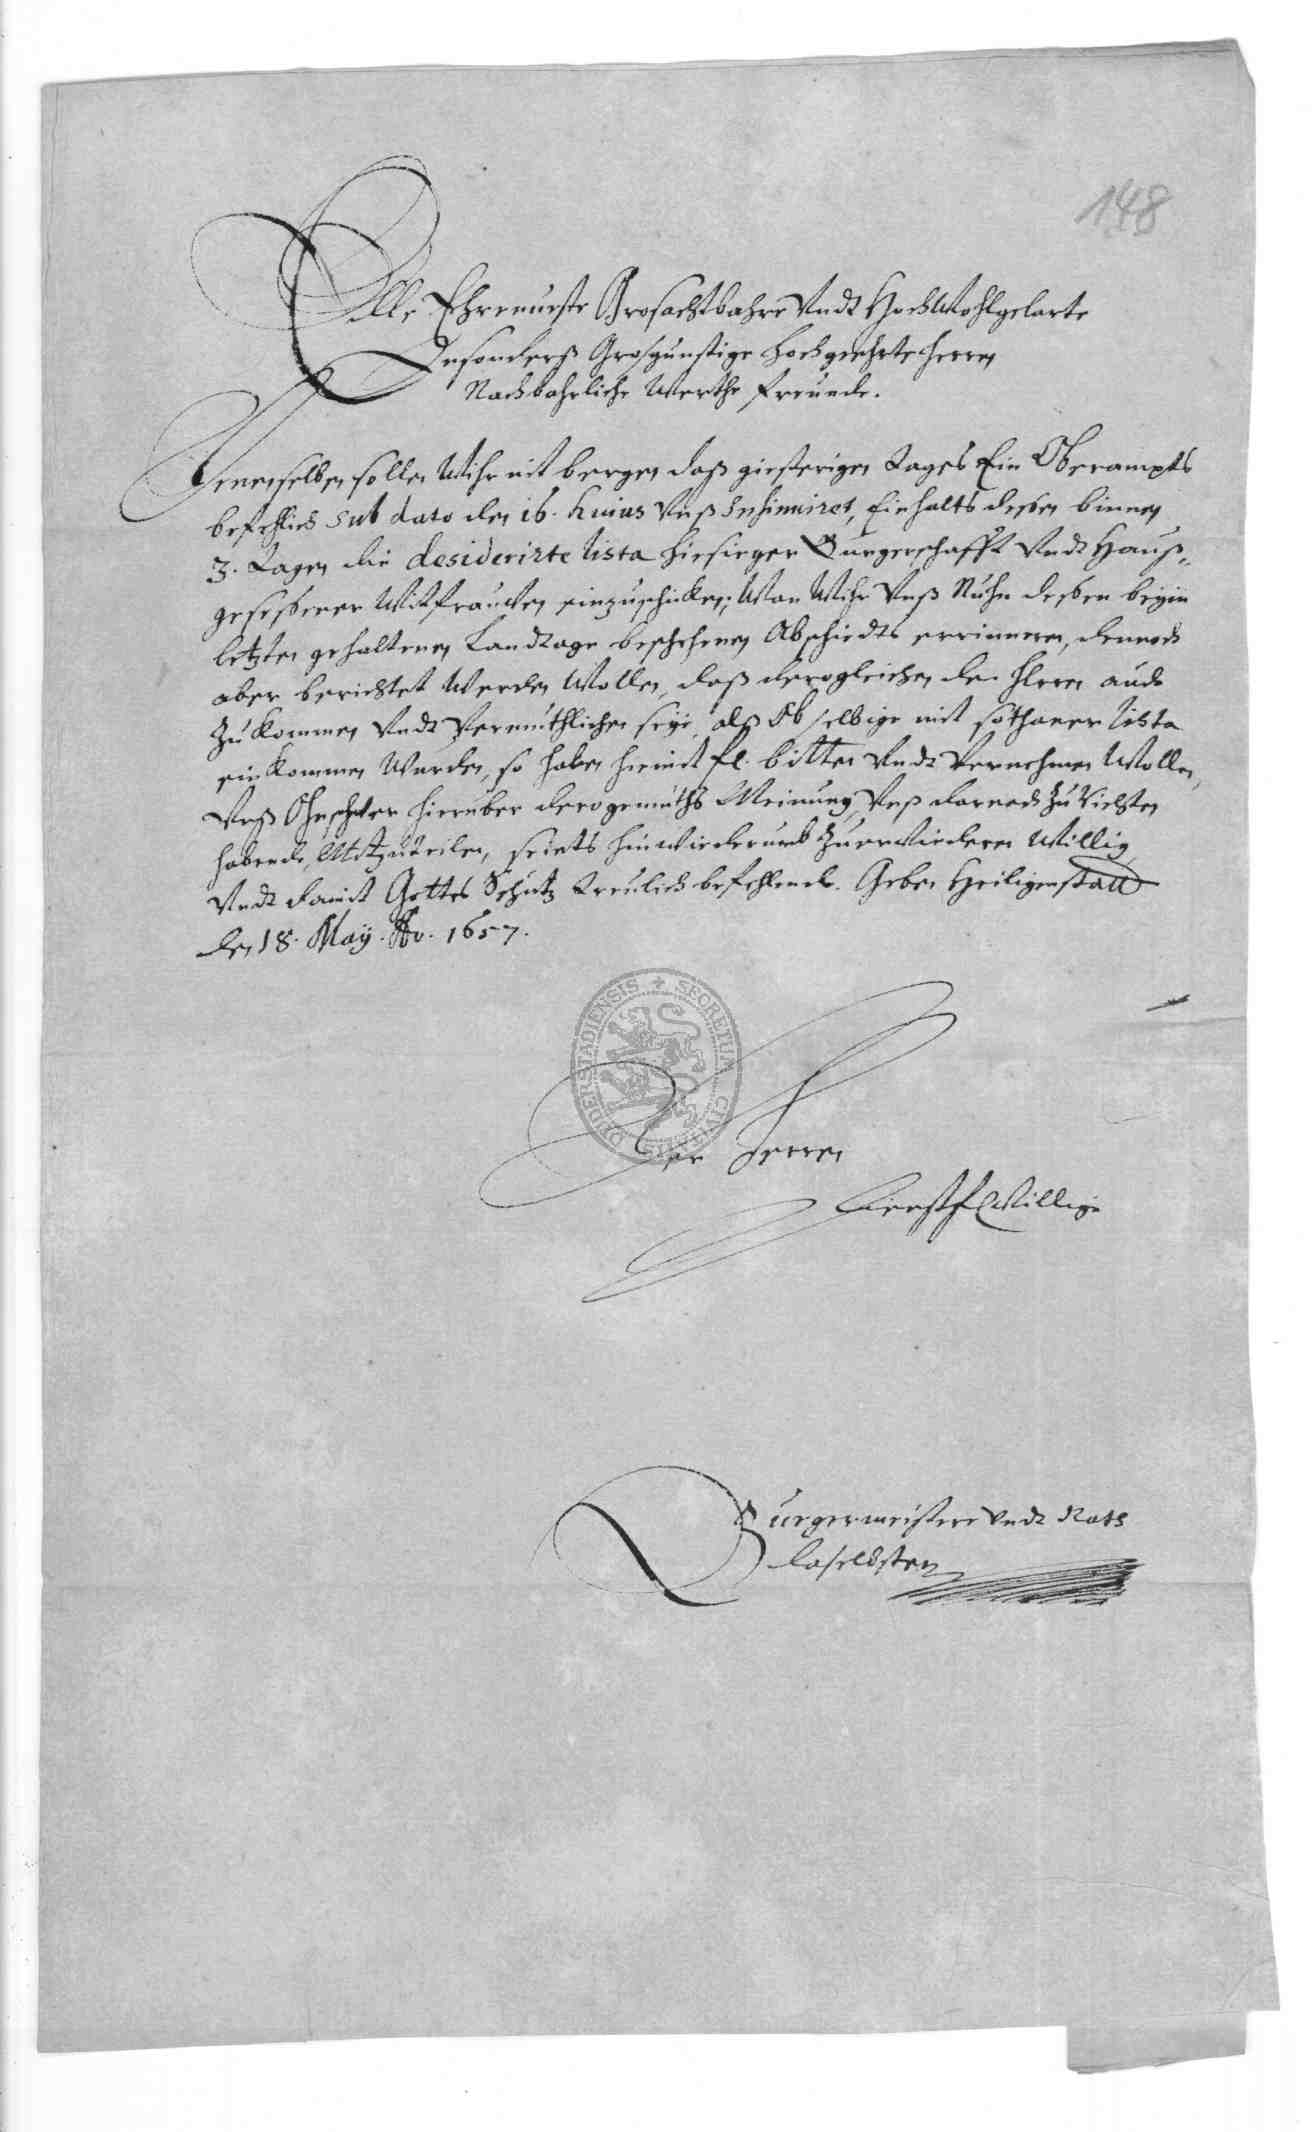 148
Edle Ehrenueste Grosachtbahre Vndt HochWohlgelarte
Besonderß Grosgünstige hochgeehrte Herren
Nachbahrliche Werthe freunde.
Denenselben sollen Wihr nit bergen daß giesterigen Tages Ein Oberampts
befehlich sub dato den 16. huius Vnß Insinuiret, Einhalts deßen binnen
3. Tagen die desiderirte lista hiesieger Burgerschafft Vndt Hauß-
geseßener Witfrauwen einzuschicken; Wan Wihr Vnß Nuhn deßen beym
letzten gehaltenen Landtage beschehenen Abschiedts errinneren, dennoch
aber berichtet Werden Wollen, daß derogleichen den Herren auch
zu kommen Vndt Vermuthlichen seye, alß Ob selbige mit sothaner lista
einkommen Wurden, so haben hiemit fl. bitten Vndt Vernehmen Wollen,
Vnß Ohnschwer hierüber dero gemüths Meinung, Vnß darnach zu Richten
habende, Mitzuteilen, seints hinwiederumb zuerwiederen Willig
Vndt damit Gottes Schutz treulich befehlende. Geben Heiligenstatt
den 18. May. Ao. 1657.
SECRETUM CIVITATIS DUDERSTADIENSIS
Der Herren
dienstfl Willige
Burgermeistere Vndt Rath
daselbsten